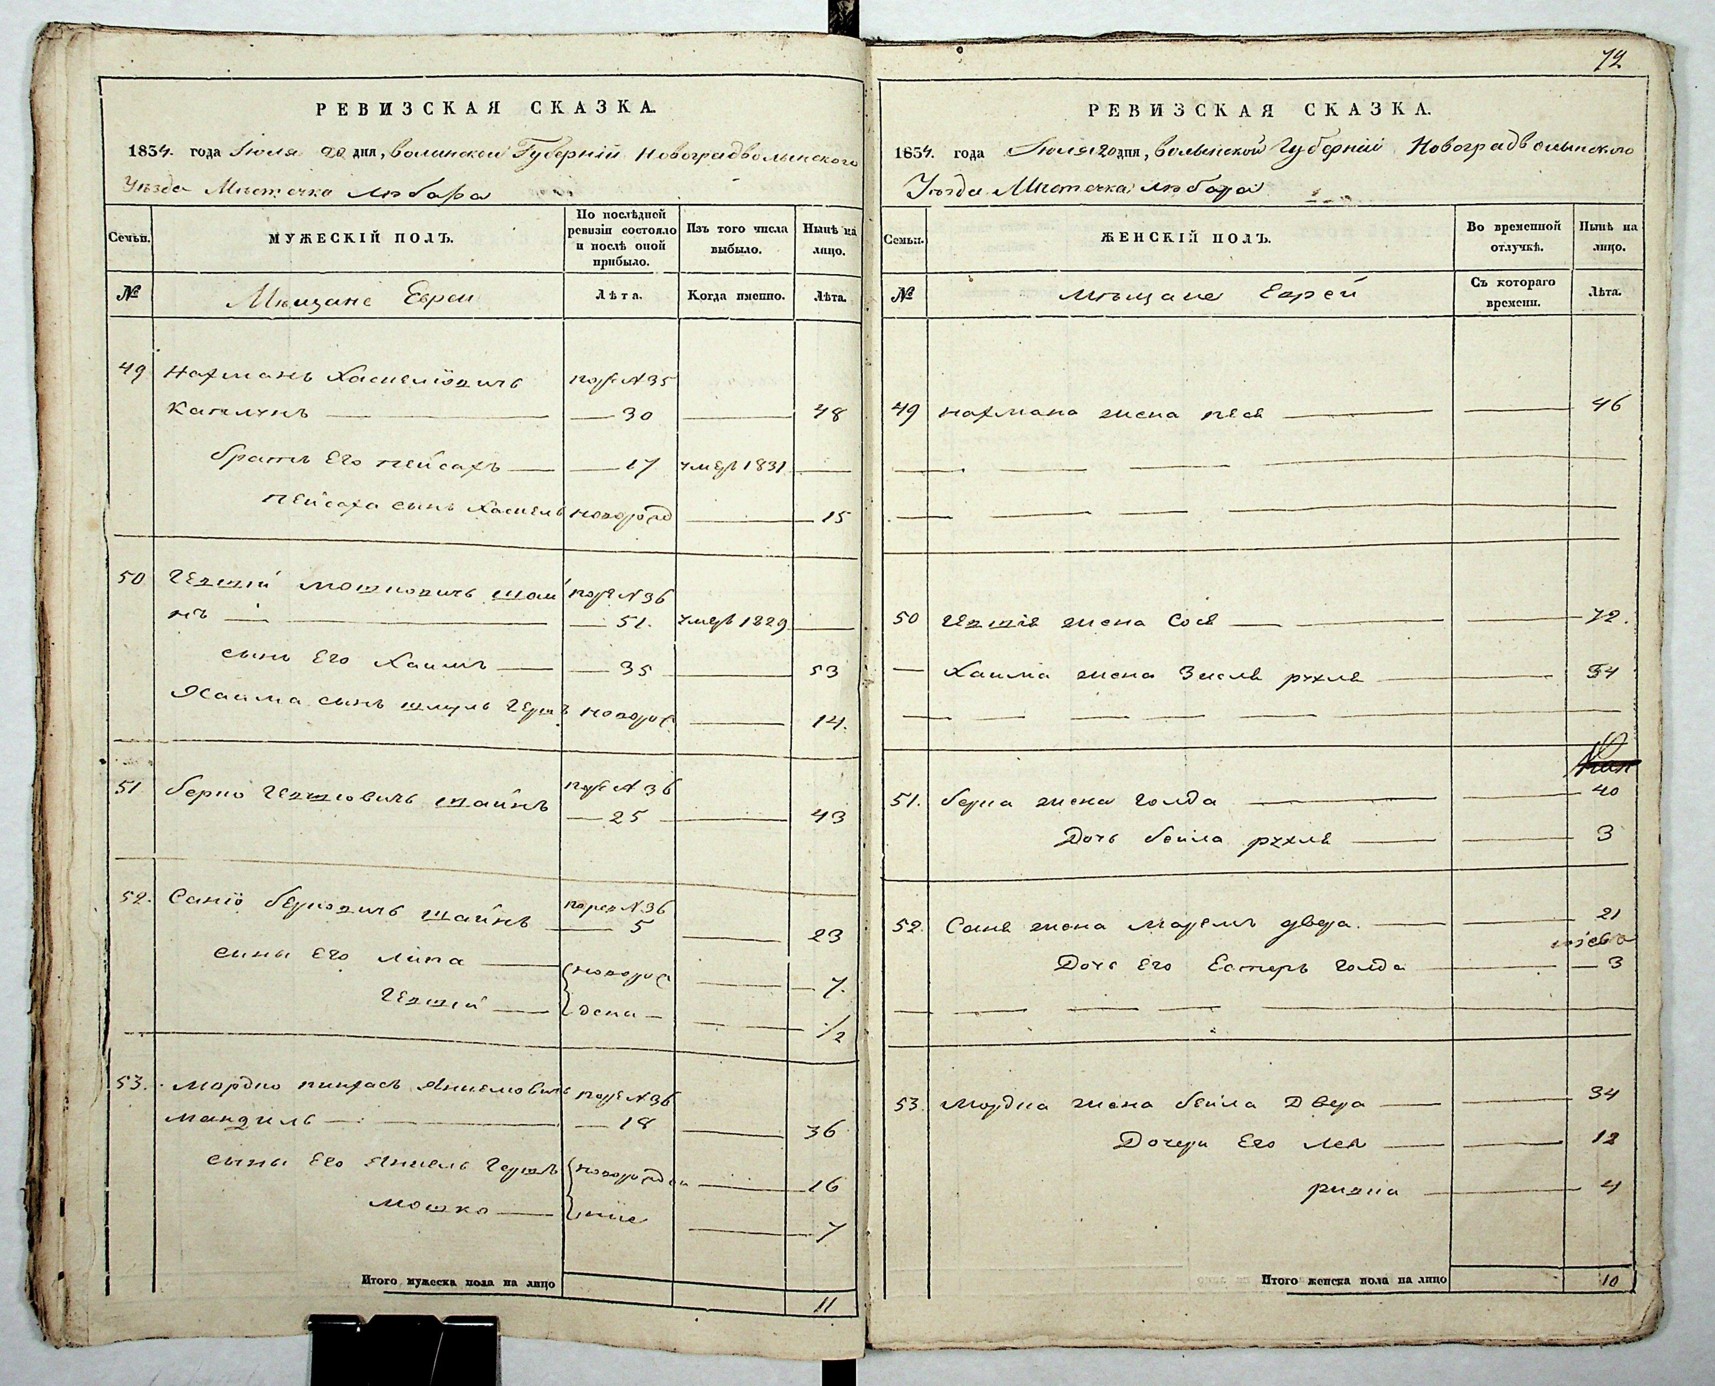 РЕВИЗСКАЯ СКАЗКА.
1854. года Іюля 20 дня, Волынской Губерніи Новоградволынского
Уѣзда Мѣстечка Любара
Семьи.
МУЖЕСКІЙ ПОЛЪ.
По послѣдней ревизіи состояло и послѣ оной прибыло.
Изъ того числа выбыло.
Нынѣ на лицо.
№
Мѣщане Евреи
Лѣта.
Когда именно.
Лѣта.
49 Нахманъ Хаскелiовичъ
Каплунъ — 30 — 48
братъ Его Пейсахъ — 17 умеръ 1831 —
Пейсаха сынъ Хаскель — 15
50 Гершiй Мошковичъ Шай
нъ — 51. умеръ 1829 —
сынъ Его Хаимъ — 35 — 53
Хаима сынъ Шмуль Герш — 14.
51 Берко Гершковичъ Шайнъ — 25 — 43
52. Санiо Берковичъ Шайнъ — 5 — 23
сыны Его Липа — 7.
Гершiй — 1/2
53. Мордко Пинхасъ Янкелiовичъ
Мандиль — 18 — 36
сыны Его Янкель Гершъ — 16
Мошко — 7
Итого мужеска пола на лицо
11
72
РЕВИЗСКАЯ СКАЗКА.
1854. года Іюля 20 дня, Волынской Губерніи Новоградволынского
Уѣзда Мѣстечка Любара
Семьи.
ЖЕНСКІЙ ПОЛЪ.
Во временной отлучкѣ.
Нынѣ на лицо.
№
Мѣщане Еврей
Съ котораго времени.
Лѣта.
49 Нахмана жена Песя — 46
50 Гершiя жена Сося — 72.
— Хаима жена Зисля Рухля — 54
51. Берка жена Голда — 40
Дочь Бейла Рухля — 3
52. Саня жена Маремъ Двера. — 21
Дочь Его Естеръ Голда — 3
53. Мордка жена Бейла Двера — 34
Дочери Его Лея — 12
Ривка — 4
Итого женска пола на лицо
10